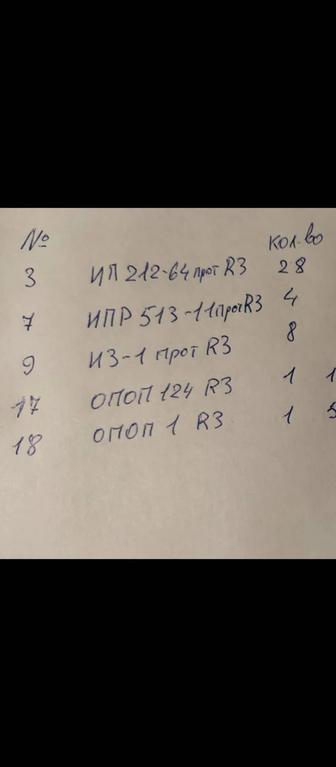 № кол-во
3 ИП 212-64 прот R3 28
7 ИПР 513-11 прот R3 4
9 ИЗ-1 прот R3 8
17 ОПОП 124 R3 1 1
18 ОПОП 1 R3 1 5